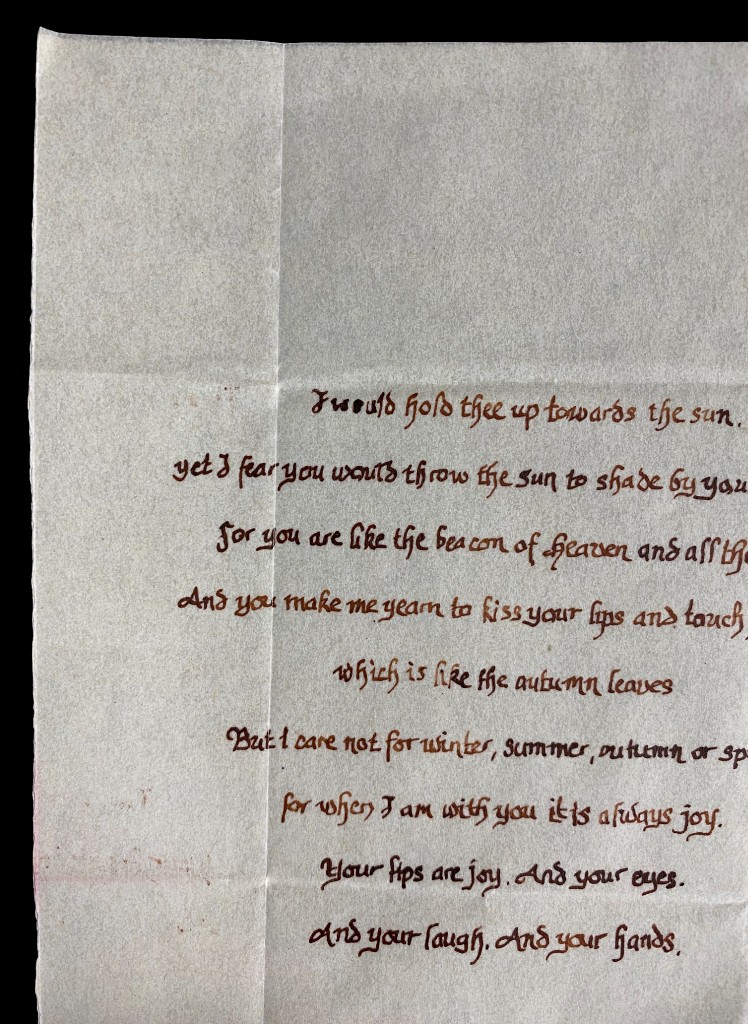 I would hold thee up towards the sun.
yet I fear you would throw the sun to shade by you
for you are like the beacon of heaven and all the
And you make me yearn to kiss your lips and touch
which is like the autumn leaves
But I care not for winter, summer, autumn or sp
for when I am with you it is always joy.
Your lips are joy. And your eyes.
And your laugh. And your hands.